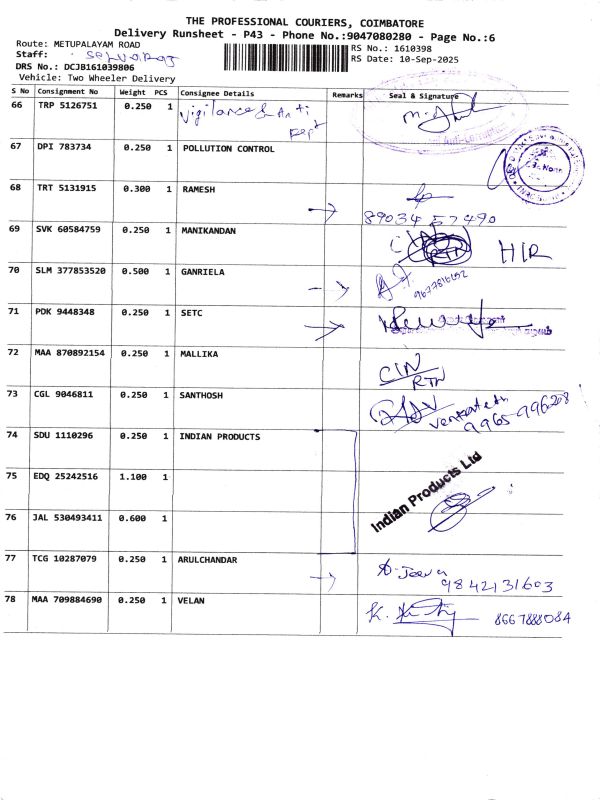 THE PROFESSIONAL COURIERS, COIMBATORE
Delivery Runsheet - P43 - Phone No.:9047080280 - Page No.:6
Route: METUPALAYAM ROAD
RS No.: 1610398
Staff: Selvaraj
RS Date: 10-Sep-2025
DRS No.: DCJB161039806
Vehicle: Two Wheeler Delivery
S No Consignment No Weight PCS Consignee Details Remarks Seal & Signature
66 TRP 5126751 0.250 1 Vigilance & Anti
67 DPI 783734 0.250 1 POLLUTION CONTROL
68 TRT 5131915 0.300 1 RAMESH
89034 57490
69 SVK 60584759 0.250 1 MANIKANDAN
RTN HIR
70 SLM 377853520 0.500 1 GANRIELA
9677816192
71 PDK 9448348 0.250 1 SETC
72 MAA 870892154 0.250 1 MALLIKA
C/N
RTN
73 CGL 9046811 0.250 1 SANTHOSH
9965996208
74 SDU 1110296 0.250 1 INDIAN PRODUCTS
75 EDQ 25242516 1.100 1
Indian Products Ltd
76 JAL 530493411 0.600 1
77 TCG 10287079 0.250 1 ARULCHANDAR
D. Jeeva
9842131603
78 MAA 709884690 0.250 1 VELAN
8667888084